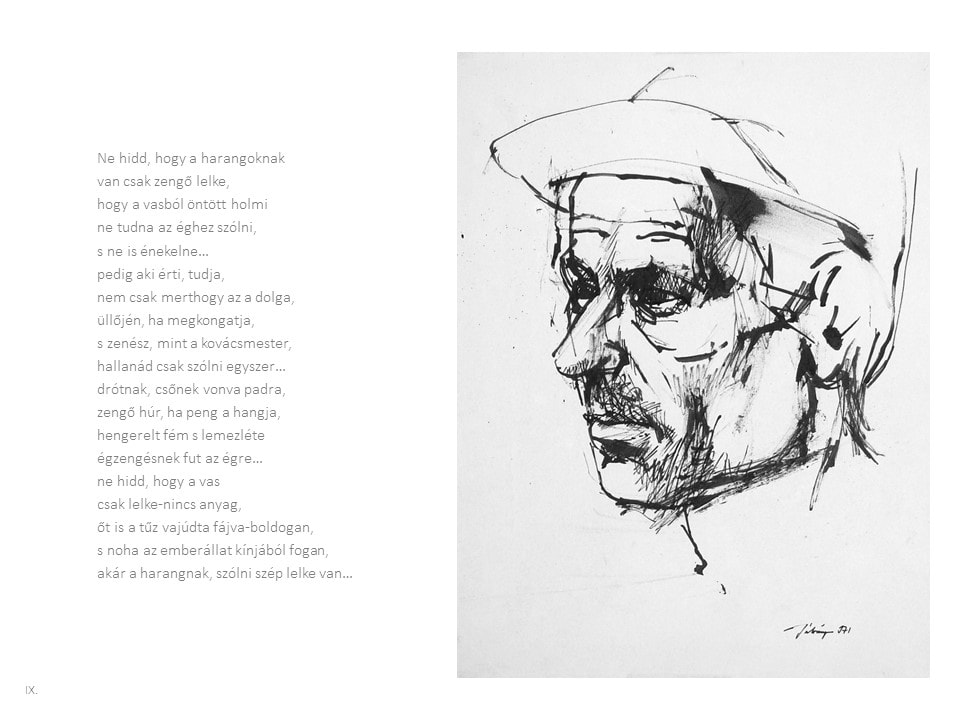 Ne hidd, hogy a harangoknak
van csak zengő lelke,
hogy a vasból öntött holmi
ne tudna az éghez szólni,
s ne is énekelne...
pedig aki érti, tudja,
nem csak merthogy az a dolga,
üllőjén, ha megkongatja,
s zenész, mint a kovácsmester,
hallanád csak szólni egyszer...
drótnak, csőnek vonva padra,
zengő húr, ha peng a hangja,
hengerelt fém s lemezléte
égzengésnek fut az égre...
ne hidd, hogy a vas
csak lelke-nincs anyag,
őt is a tűz vajúdta fájva-boldogan,
s noha az emberállat kínjából fogan,
akár a harangnak, szólni szép lelke van...
IX.